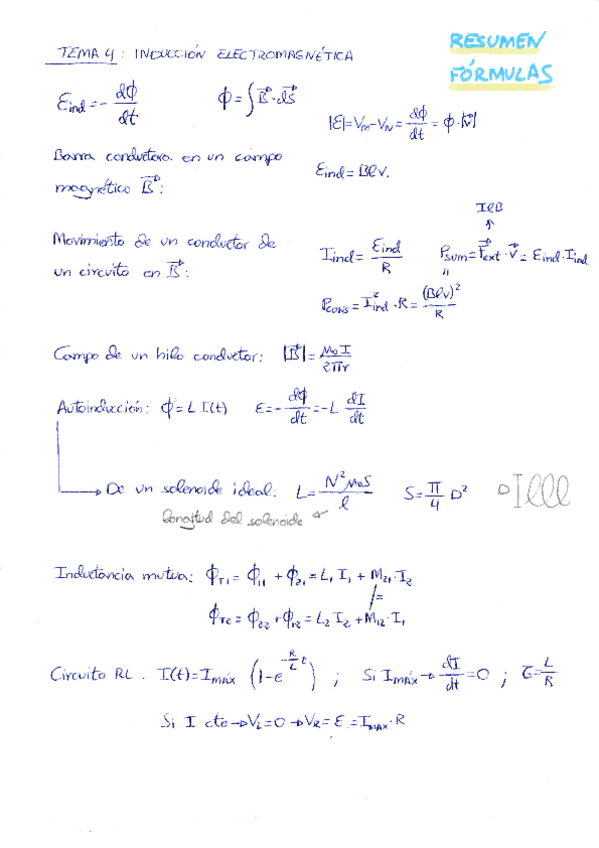 TEMA 4: INDUCCIÓN ELECTROMAGNÉTICA
RESUMEN
FÓRMULAS
Eind = - dϕ/dt    ϕ = ∫ B⃗ · dS⃗
|E| = VM - VN = dϕ/dt = ϕ · |v⃗|
Barra conductora en un campo
magnético B⃗:
Eind = Blv.
Movimiento de un conductor de
un circuito en B⃗:
IlB
↑
Iind = Eind/R    Psum = F⃗ext · v⃗ = Eind · Iind
=
Pcons = I²ind · R = (Blv)²/R
Campo de un hilo conductor: |B⃗| = μ₀ I / 2πr
Autoinducción: ϕ = L I(t)    E = - dϕ/dt = -L dI/dt
→ De un solenoide ideal: L = N² μ₀ S / l    S = π/4 D²    D
longitud del solenoide ←
Inductancia mutua: ϕT1 = ϕ11 + ϕ21 = L1 I1 + M21 · I2
=
ϕT2 = ϕ22 + ϕ12 = L2 I2 + M12 · I1
Circuito RL. I(t) = Imáx (1 - e^(-R/L t)) ; Si Imáx → dI/dt = 0 ; τ = L/R
Si I cte → VL = 0 → VR = E = Imáx · R